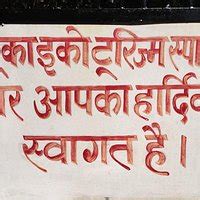 का इको टूरिज्म स्पा
र आपका हार्दि
स्वागत है।